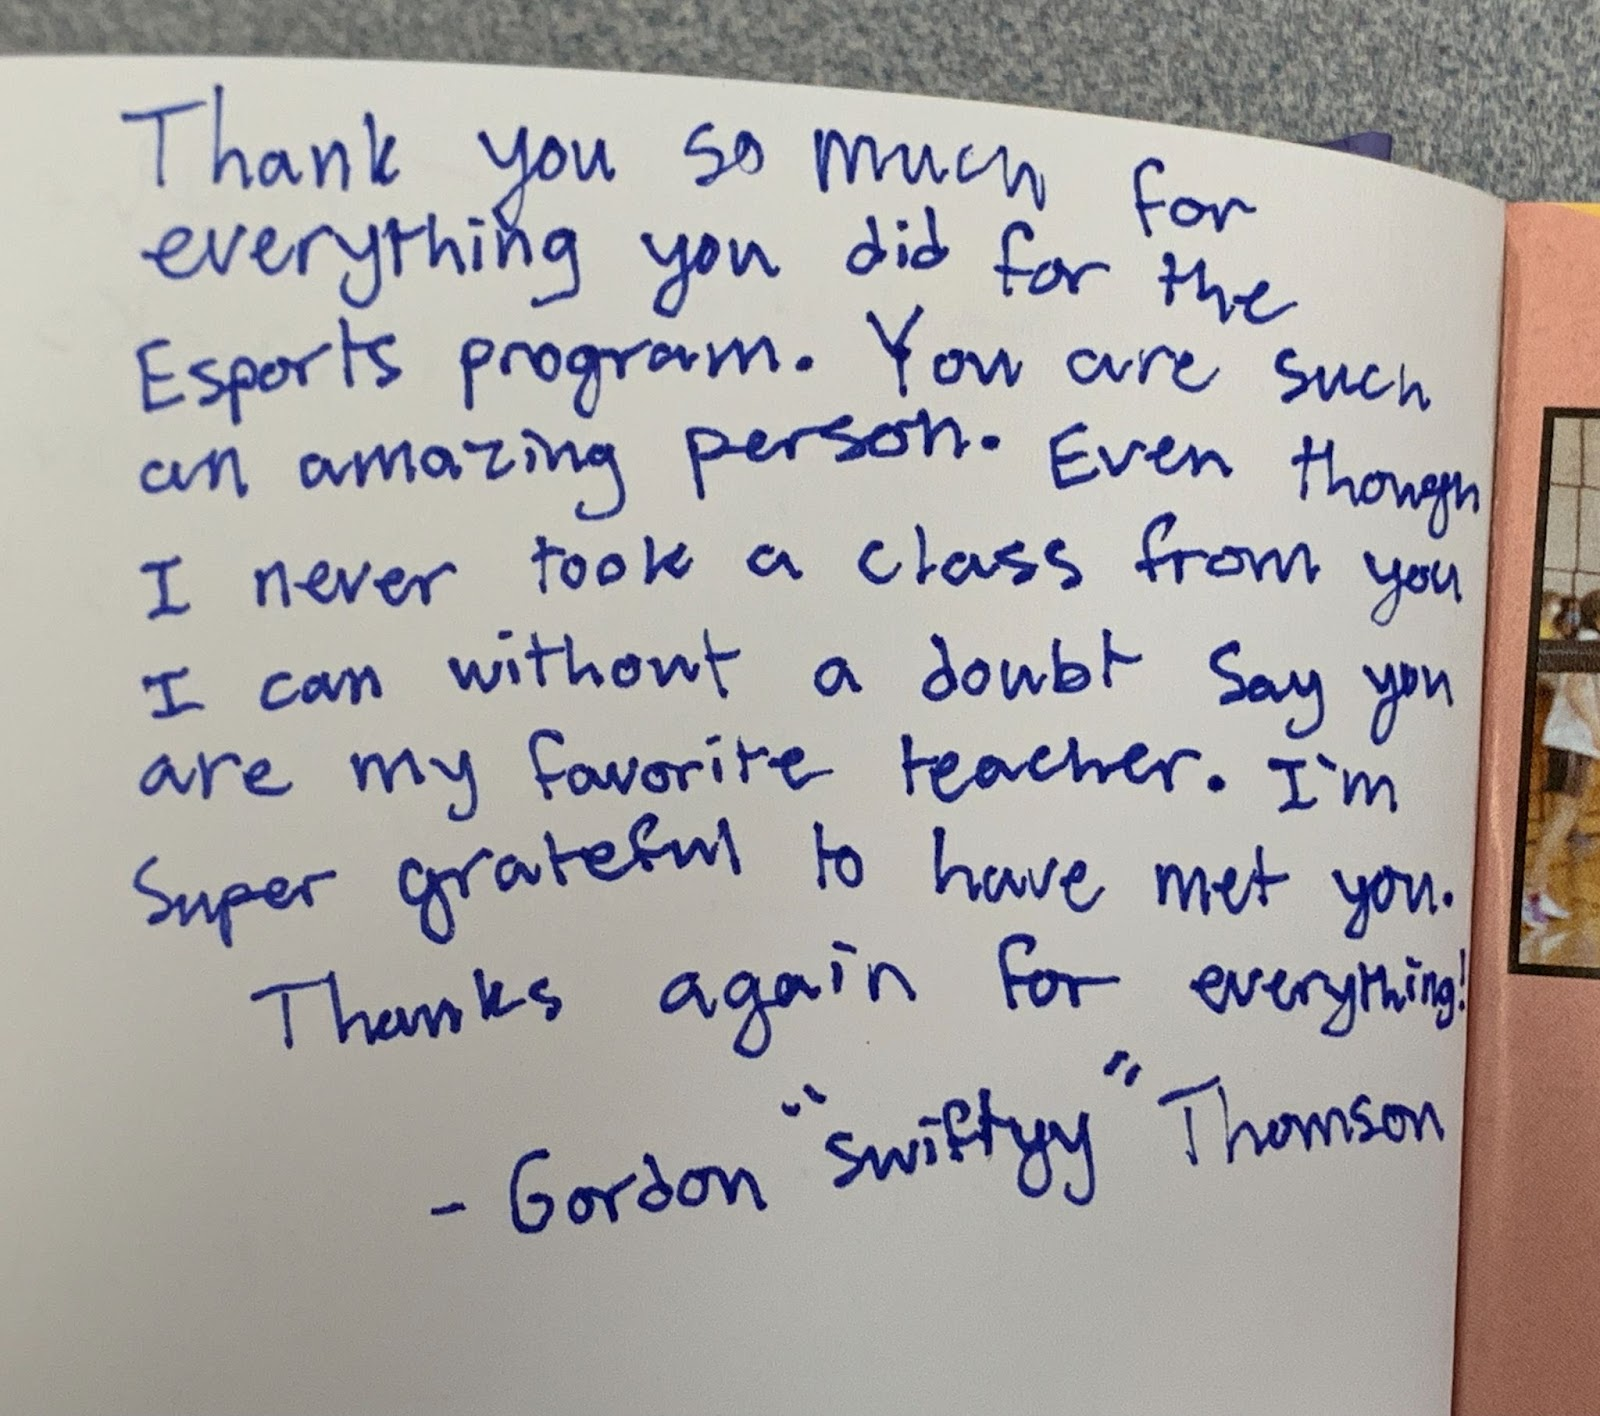 Thank you so much for
everything you did for the
Esports program. You are such
an amazing person. Even though
I never took a class from you
I can without a doubt say you
are my favorite teacher. I'm
super grateful to have met you.
Thanks again for everything!
- Gordon "Swiftyy" Thomson